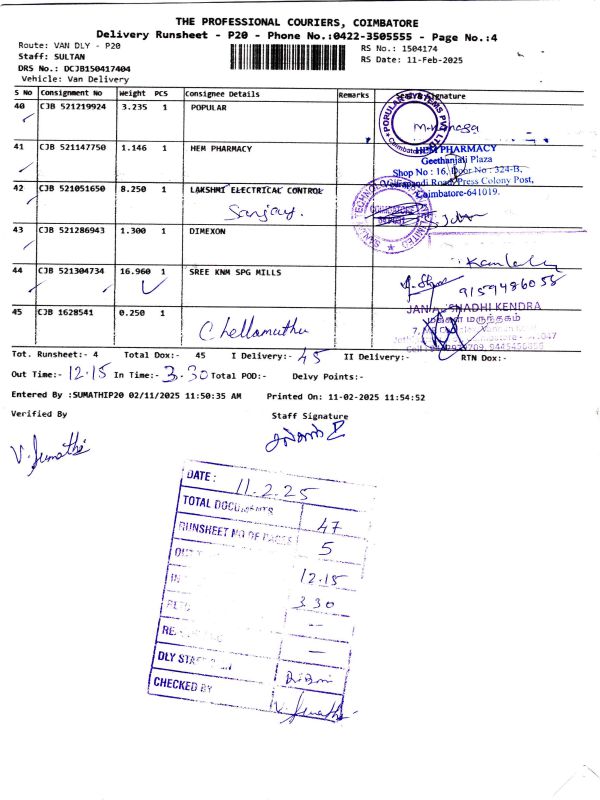 THE PROFESSIONAL COURIERS, COIMBATORE
Delivery Runsheet - P20 - Phone No.:0422-3505555 - Page No.:4
Route: VAN DLY - P20 RS No.: 1504174
Staff: SULTAN RS Date: 11-Feb-2025
DRS No.: DCJB150417404
Vehicle: Van Delivery
S No Consignment No Weight PCS Consignee Details Remarks Signature
40 CJB 521219924 3.235 1 POPULAR
POPULAR SYSTEMS PVT. LTD. Coimbatore
41 CJB 521147750 1.146 1 HEM PHARMACY
HEM PHARMACY
Geethanjali Plaza
Shop No : 16, Door No : 324-B,
Veirapandi Road, Press Colony Post,
Coimbatore-641019.
42 CJB 521051650 8.250 1 LAKSHMI ELECTRICAL CONTROL
Sanjay.
43 CJB 521286943 1.300 1 DIMEXON
44 CJB 521304734 16.960 1 SREE KNM SPG MILLS
9159486055
45 CJB 1628541 0.250 1
Chellamuthu
JAN AUSHADHI KENDRA
மக்கள் மருந்தகம்
Tot. Runsheet:- 4 Total Dox:- 45 I Delivery:- 45 II Delivery:- RTN Dox:-
Out Time:- 12.15 In Time:- 3.30 Total POD:- Delvy Points:-
Entered By :SUMATHIP20 02/11/2025 11:50:35 AM Printed On: 11-02-2025 11:54:52
Verified By Staff Signature
V. Sumathi
DATE : 11.2.25
TOTAL DOCUMENTS 47
RUNSHEET NO OF PAGES 5
12.15
3.30
DLY STAFF SIGN
CHECKED BY V. Sumathi